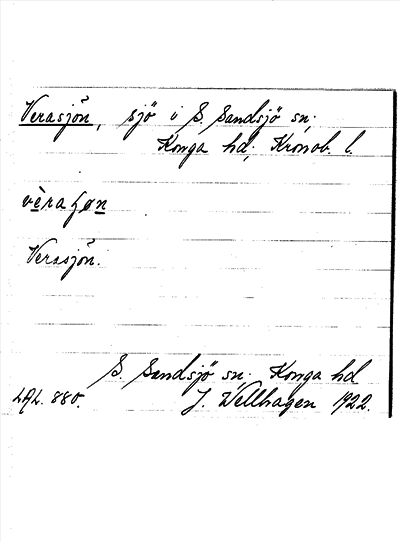 Verasjön, sjö i S. Sandsjö sn;
Konga hd; Kronob. l.
vèraʃøn
Verasjön.
S. Sandsjö sn; Konga hd
LAL. 880. J. Wellhagen 1922.